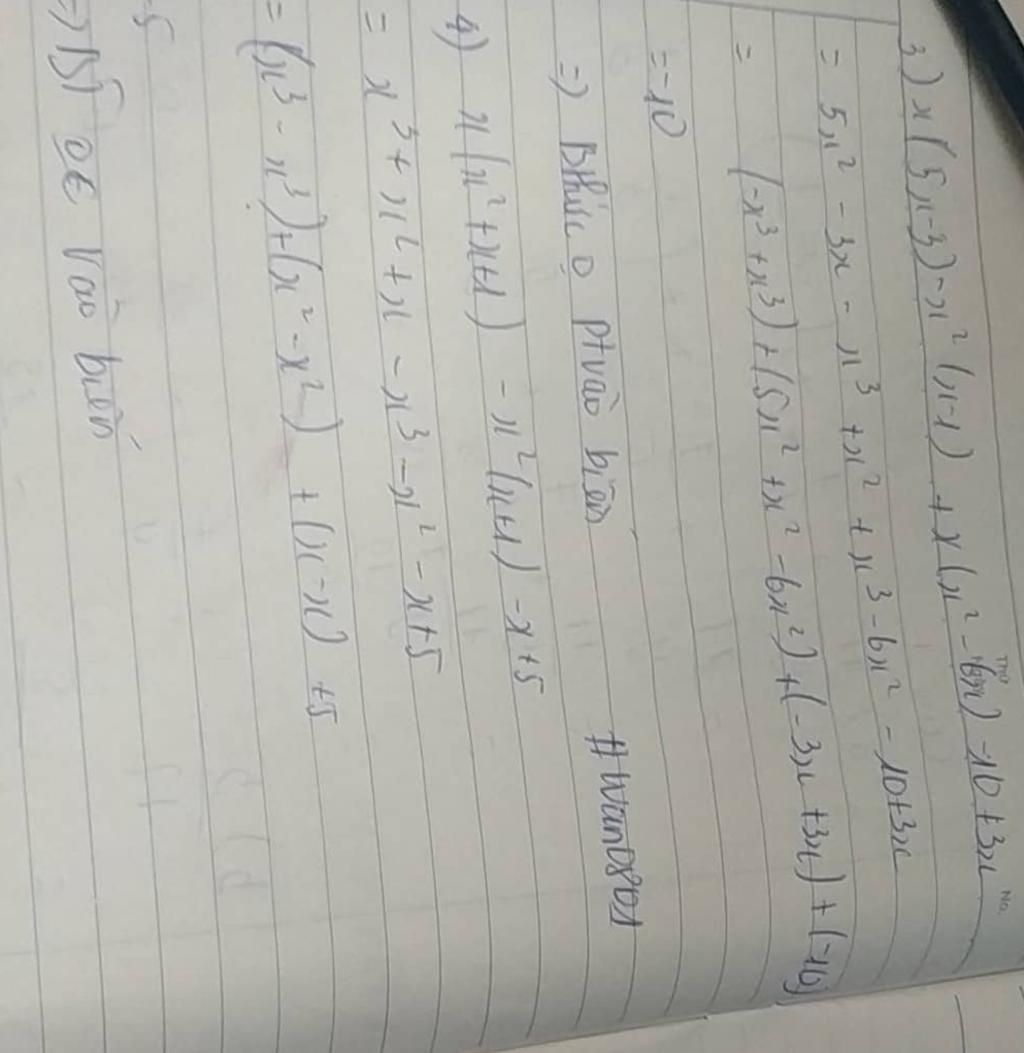 Thứ
No.
3) x(5x-3)-x²(x-1) + x(x² - 6x) -10 + 3x
= 5x² - 3x - x³ + x² + x³ - 6x² - 10 + 3x
= (-x³ + x³) + (5x² + x² - 6x²) + (-3x + 3x) + (-10)
= -10
=) Bthức 0 pt vào biến
#Wan0801
4) x(x² + x+1) - x²(x+1) - x + 5
= x³ + x² + x - x³ - x² - x + 5
= (x³ - x³) + (x² - x²) + (x - x) + 5
=5
=) BT 0€ vào biến